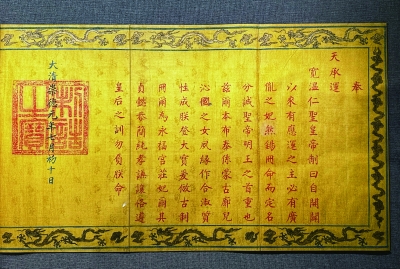 奉
天承運
寬溫仁聖皇帝制曰自開闢
以來有應運之主必有廣
胤之妃然錫冊命而定名
分誠聖帝明王之首重也
茲爾本布泰係蒙古廓兒
沁國之女夙緣作合淑質
性成朕登大寶爰倣古制
冊爾為永福宮莊妃爾其
貞懿恭簡純孝謙讓恪遵
皇后之訓勿負朕命
大清崇德元年七月初十日
制誥之寶